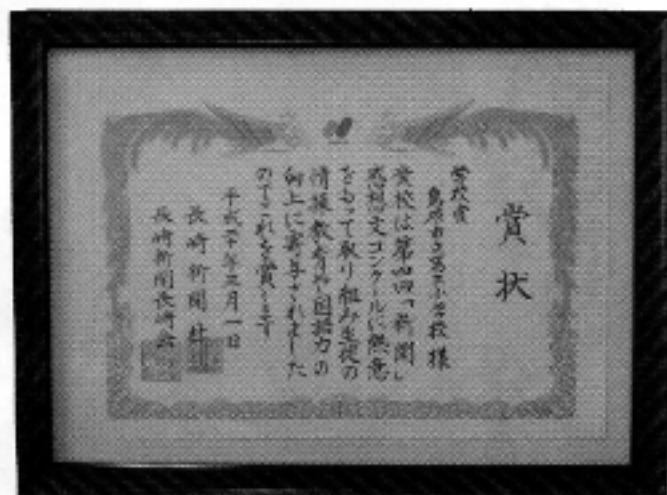 賞状
学校賞
島原市立第三小学校様
貴校は第四回「新聞」
感想文コンクールに熱意
をもって取り組み生徒の
情操教育や国語力の
向上に寄与されました
のでこれを賞します
平成二十年三月一日
長崎新聞社
長崎新聞長崎会